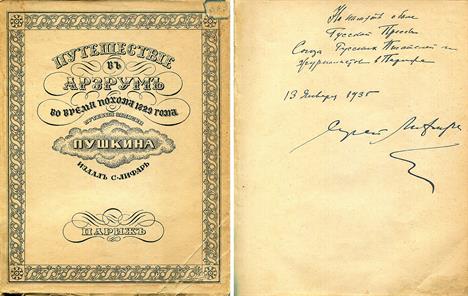 ПУТЕШЕСТВІЕ
ВЪ
АРЗРУМЪ
ВО ВРЕМЯ ПОХОДА 1829 ГОДА
ПУШКИНА
ИЗДАЛЪ С•ЛИФАРЬ
ПАРИЖЪ
Русской Прессы
Союза Русских Писателей и
журналистов в Париже
13 Января 1935
Сергей Лифарь